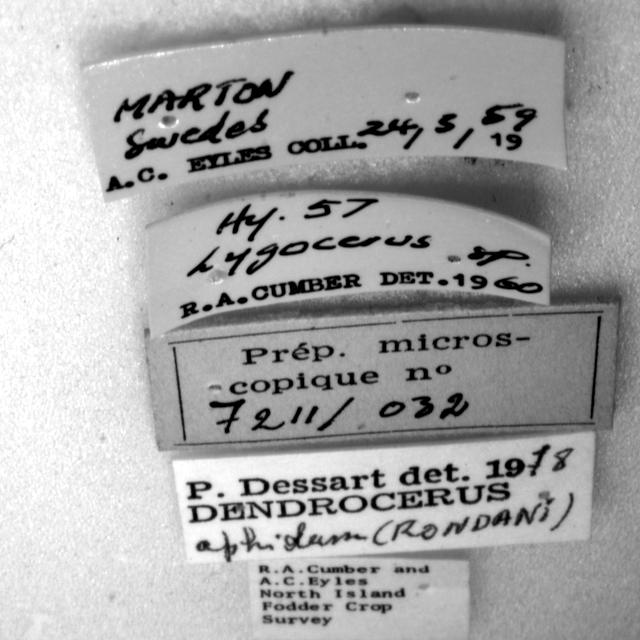 MARTON
Swedes
A.C. EYLES COLL. 24, 5, 1959
Hy. 57
Lygocerus sp.
R.A.CUMBER DET. 1960
Prép. micros-
copique nº
7211/ 032
P. Dessart det. 1978
DENDROCERUS
aphidum (RONDANI)
R.A.Cumber and
A.C.Eyles
North Island
Fodder Crop
Survey